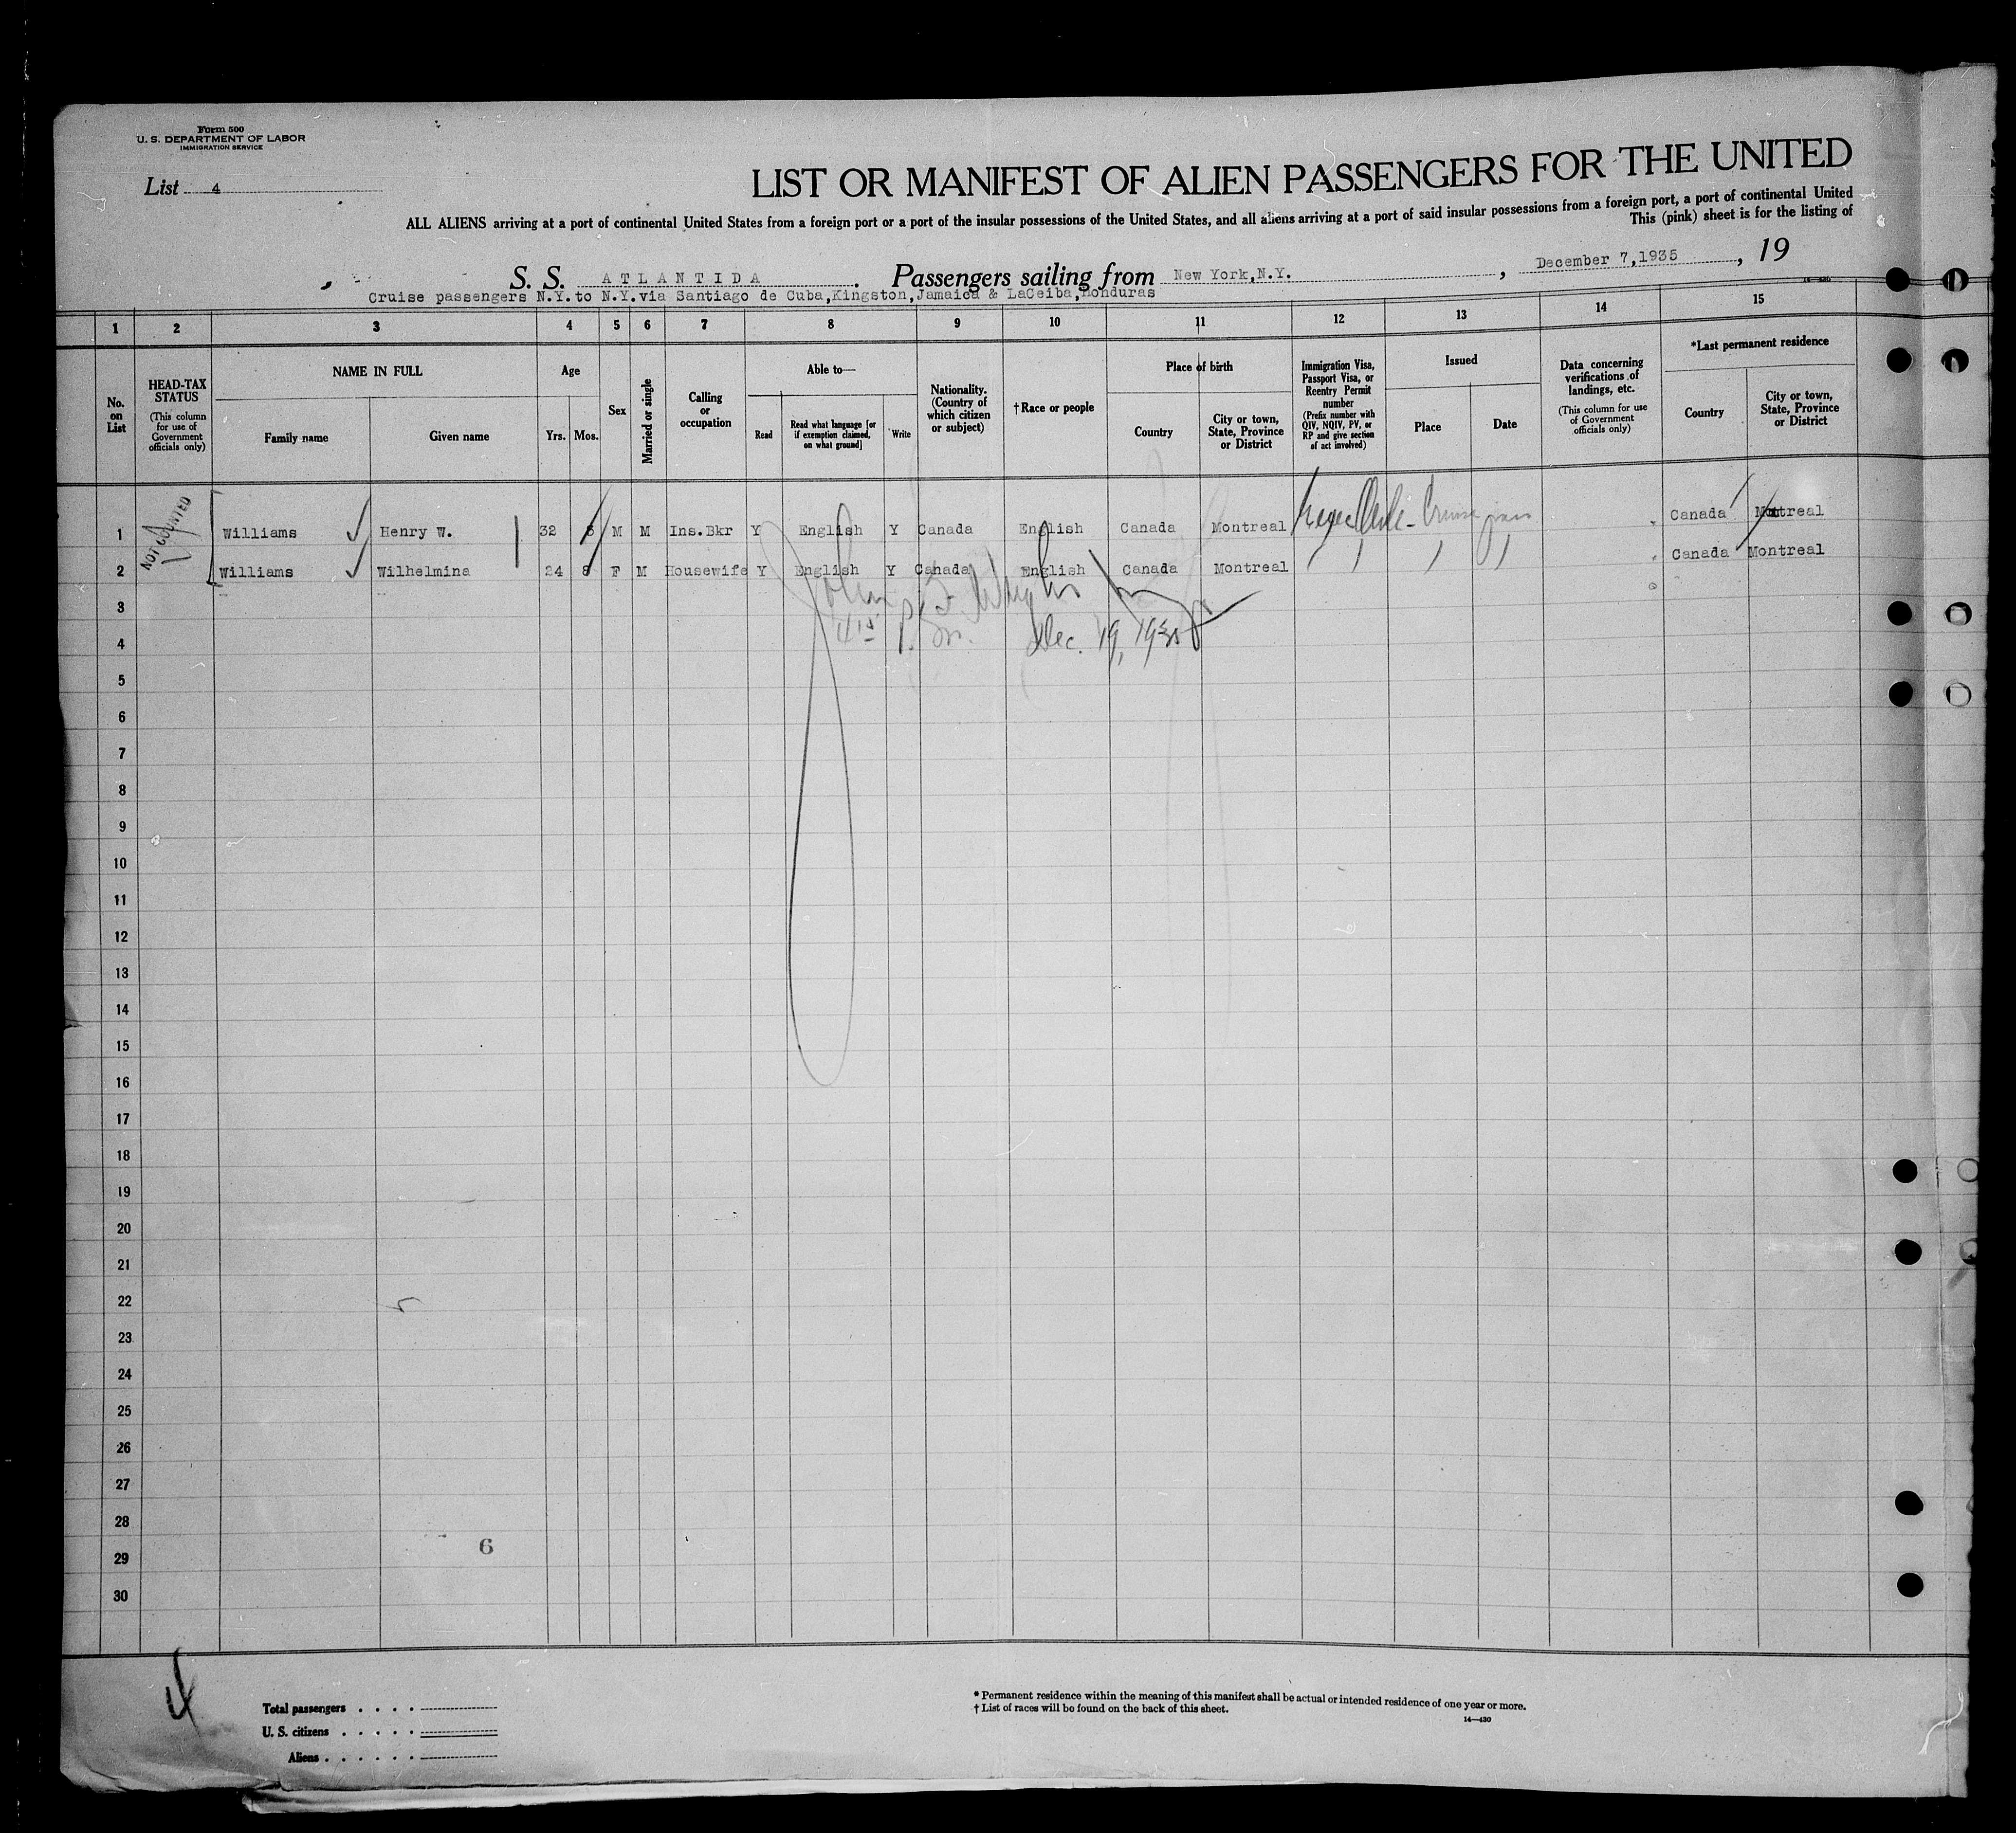 Form 500
U. S. DEPARTMENT OF LABOR
IMMIGRATION SERVICE
List 4
LIST OR MANIFEST OF ALIEN PASSENGERS FOR THE UNITED
ALL ALIENS arriving at a port of continental United States from a foreign port or a port of the insular possessions of the United States, and all aliens arriving at a port of said insular possessions from a foreign port, a port of continental United
This (pink) sheet is for the listing of
S. S. ATLANTIDA. Passengers sailing from New York, N.Y., December 7, 1935, 19
Cruise passengers N.Y. to N.Y. via Santiago de Cuba, Kingston, Jamaica & LaCeiba, Honduras
14—430
1 2 3 4 5 6 7 8 9 10 11 12 13 14 15
No. on List
HEAD-TAX STATUS
(This column for use of Government officials only)
NAME IN FULL
Family name
Given name
Age
Yrs.
Mos.
Sex
Married or single
Calling or occupation
Able to—
Read
Read what language [or if exemption claimed, on what ground]
Write
Nationality. (Country of which citizen or subject)
†Race or people
Place of birth
Country
City or town, State, Province or District
Immigration Visa, Passport Visa, or Reentry Permit number
(Prefix number with QIV, NQIV, PV, or RP and give section of act involved)
Issued
Place
Date
Data concerning verifications of landings, etc.
(This column for use of Government officials only)
*Last permanent residence
Country
City or town, State, Province or District
NOT COUNTED
1 Williams Henry W. 32 8 M M Ins.Bkr Y English Y Canada English Canada Montreal Cruise pass Canada Montreal
2 Williams Wilhelmina 24 8 F M Housewife Y English Y Canada English Canada Montreal Canada Montreal
3
4 Dec. 19, 1935
5
6
7
8
9
10
11
12
13
14
15
16
17
18
19
20
21
22
23
24
25
26
27
28
29
30
6
Total passengers
U. S. citizens
Aliens
* Permanent residence within the meaning of this manifest shall be actual or intended residence of one year or more.
† List of races will be found on the back of this sheet.
14—430